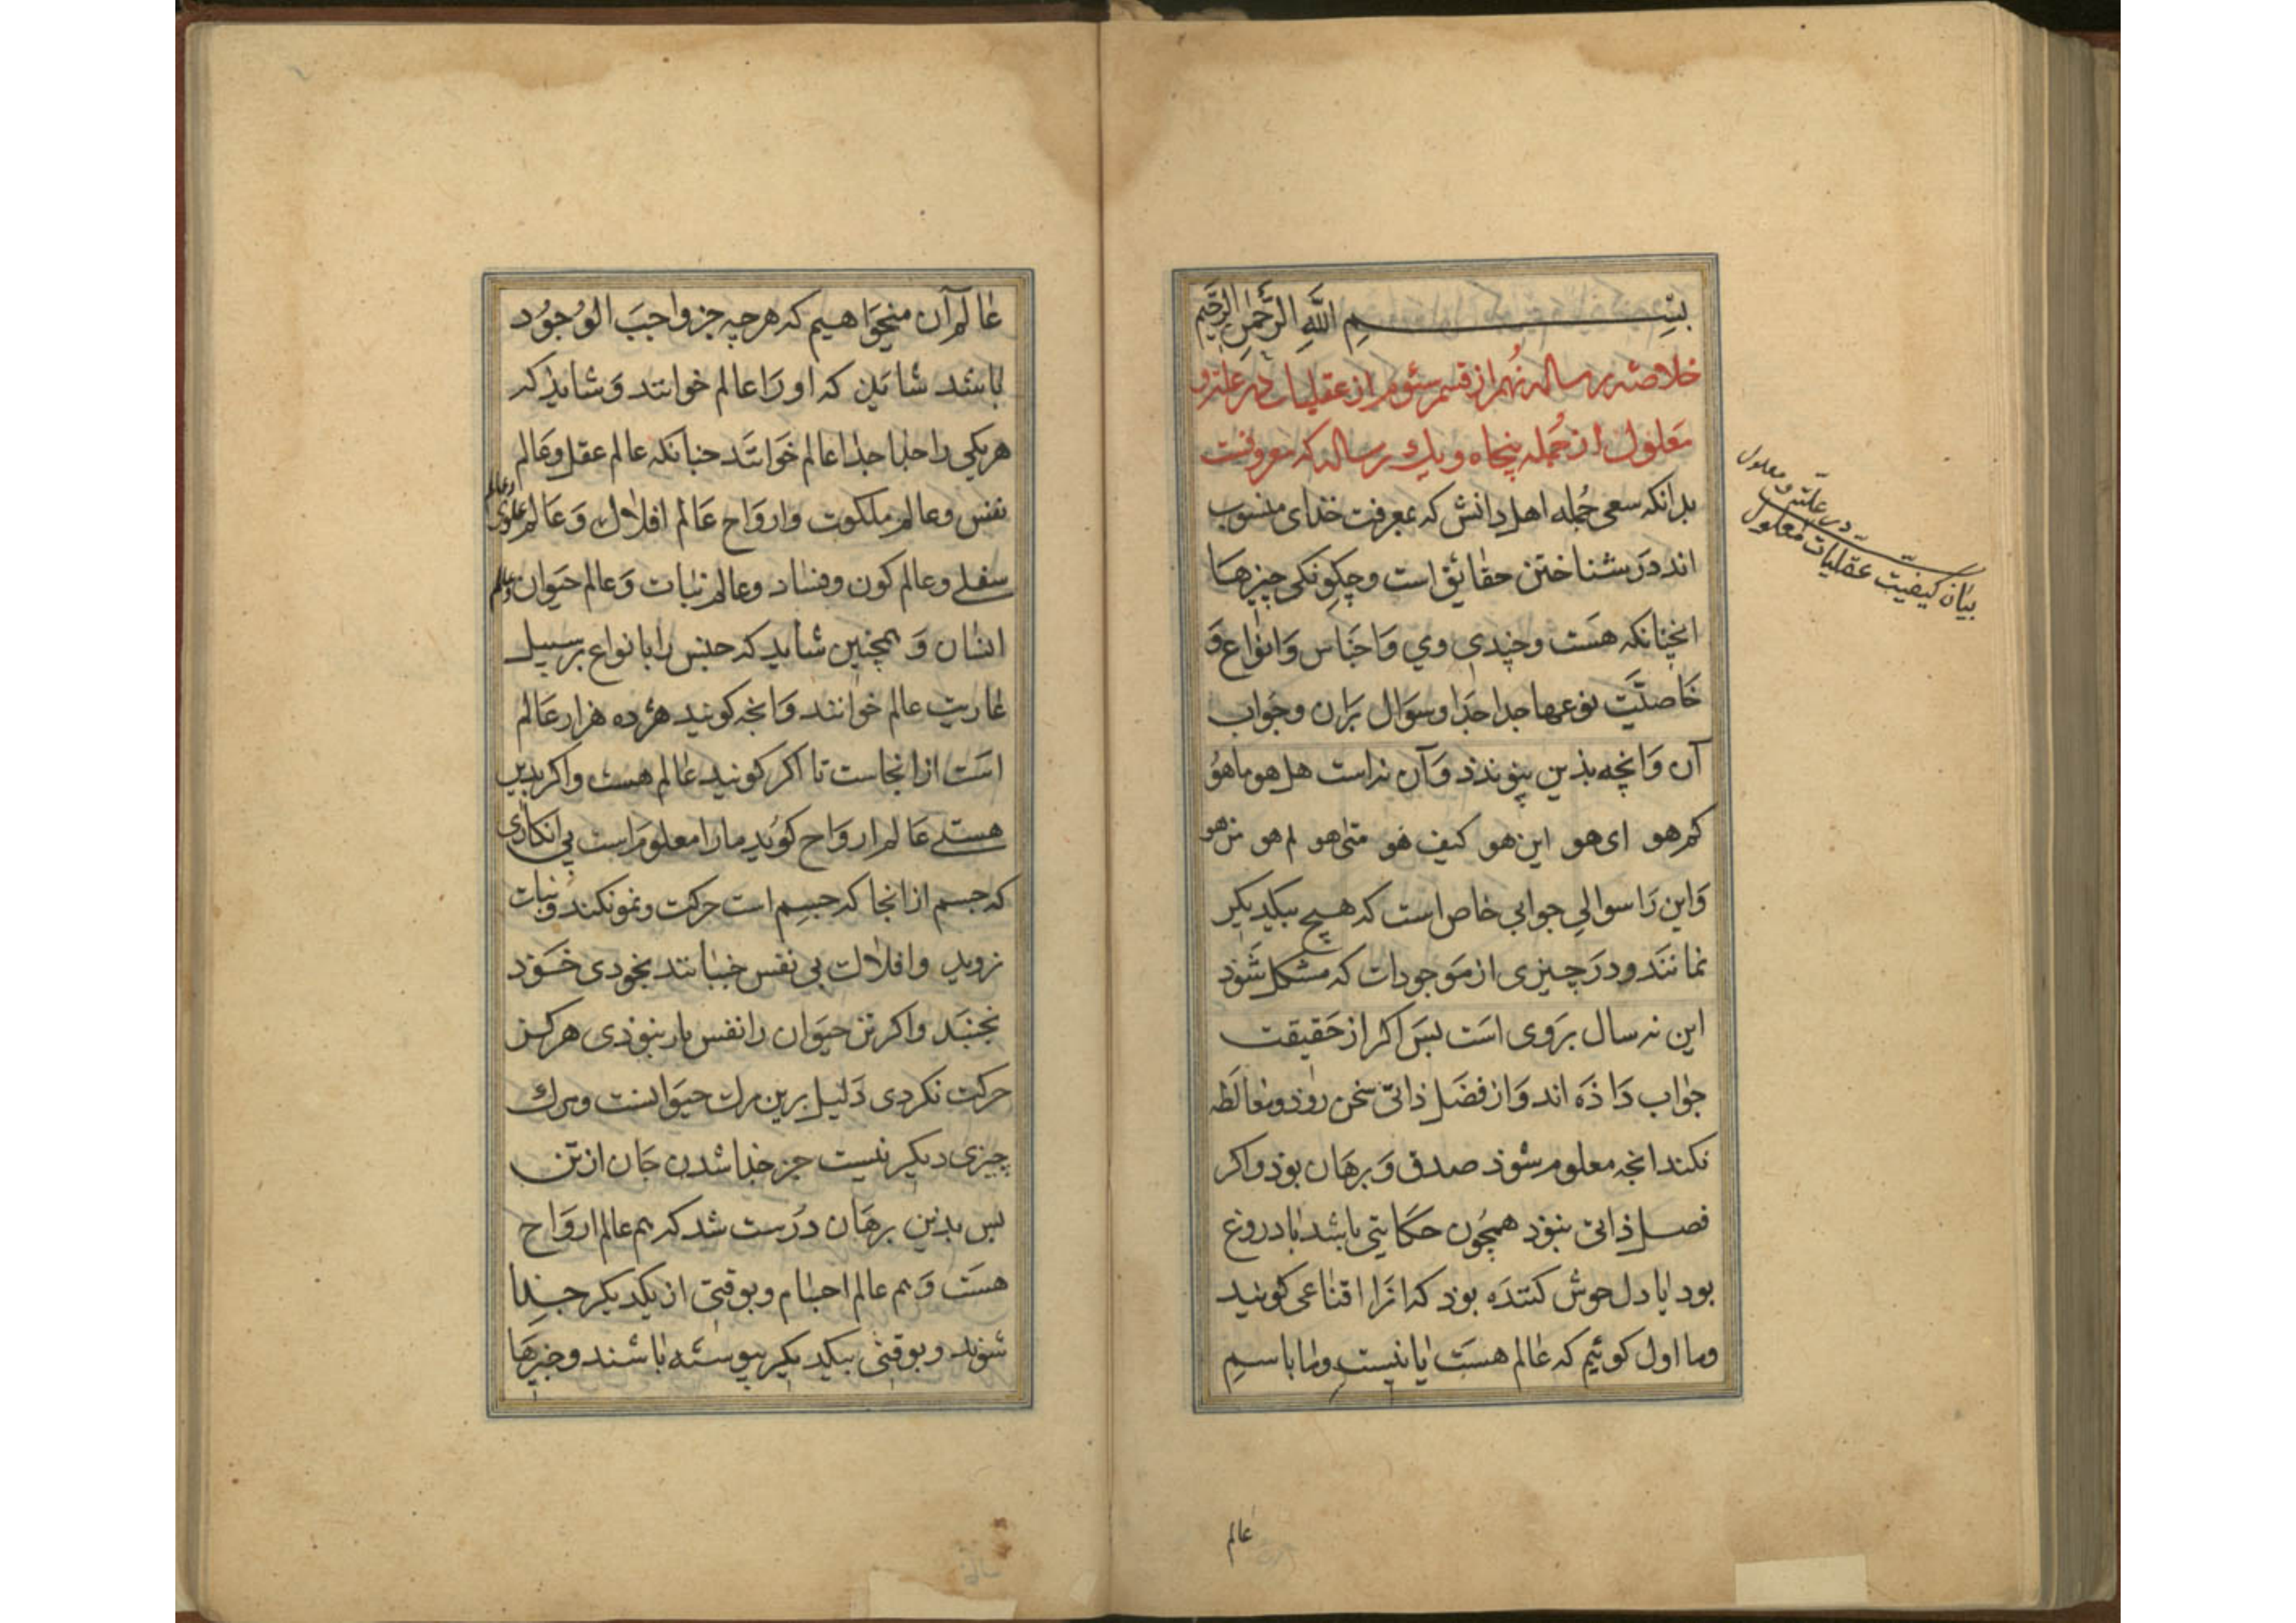 بسم الله الرحمن الرحیم
خلاصهٔ رساله نهم از قسم سئوم از عقلیات در علت و
معلول از جمله پنجاه و یک رساله که معروفست
بدانکه سعی جمله اهل دانش که بمعرفت خدای منسوب
اند در شناختن حقائق است و چکونکی چیزها
انچنانکه هست و چندی وی و اجناس و انواع و
خاصیّت نوعها جدا جدا و سوال بران و جواب
آن و انچه بذین پیوندذ و آن نه است هل هو ما هو
کم هو ای هو این هو کیف هو متی هو لم هو من هو
و این را سوالی جوابی خاص است که هیچ بیکدیکر
نمانند و در چیزی از موجودات که مشکل شوذ
این نه سال بروی است بس اکر از حقیقت
جواب داذه اند و از فضل ذاتی سخن روذ و مغالطه
نکند انچه معلوم شوذ صدق و برهان بوذ و اکر
فصل ذاتی نبوذ همچون حکایتی باشد یا دروغ
بود یا دل خوش کننده بوذ که انرا اقناعی کویند
و ما اول کوئیم که عالم هست یا نیست و ما باسم
در علّت و معلول
بیان کیفیت عقلیات معلول
عالم
عالم آن میخواهیم که هر چه جز واجب الوجود
باشد شاید که او را عالم خوانند و شاید که
هر یکی را جدا جدا عالم خوانند چنانکه عالم عقل و عالم
نفس و عالم ملکوت و ارواح عالم افلاک و عالم علوی و عالم
سفلی و عالم کون و فساد و عالم نبات و عالم حیوان و عالم
انسان و همچنین شاید که جنس را با نواع بر سبیل
عاریت عالم خوانند و انچه کویند هژده هزار عالم
است از انجاست تا اکر کویند عالم هست و اکر بدین
هستی عالم ارواح کوید ما را معلوم است بی انکاری
که جسم از انجا که جسم است حرکت و نمو نکند و نبات
نروید و افلاک بی نفس جنبانند بخودی خود
نجنبد و اکر تن حیوان را نفس یار نبوذی هرکز
حرکت نکردی دلیل برین مرک حیوانست و مرک
چیزی دیکر نیست جز جدا شدن جان از تن
بس بدین برهان درست شد که هم عالم ارواح
هست و هم عالم اجسام و بوقتی از یکدیکر جدا
شوند و بوقتی بیکدیکر پیوسته باشند و چیزها